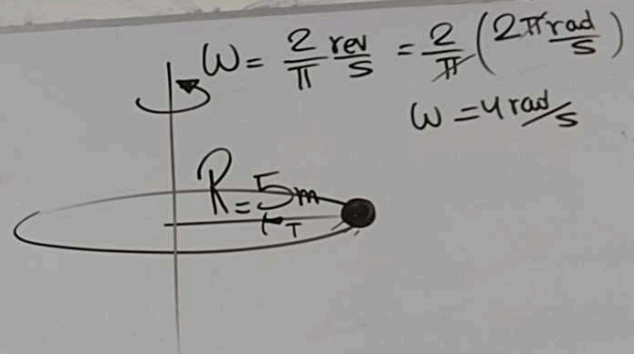 ω = 2/π rev/s = 2/π (2π rad/s)
ω = 4 rad/s
R = 5m
T